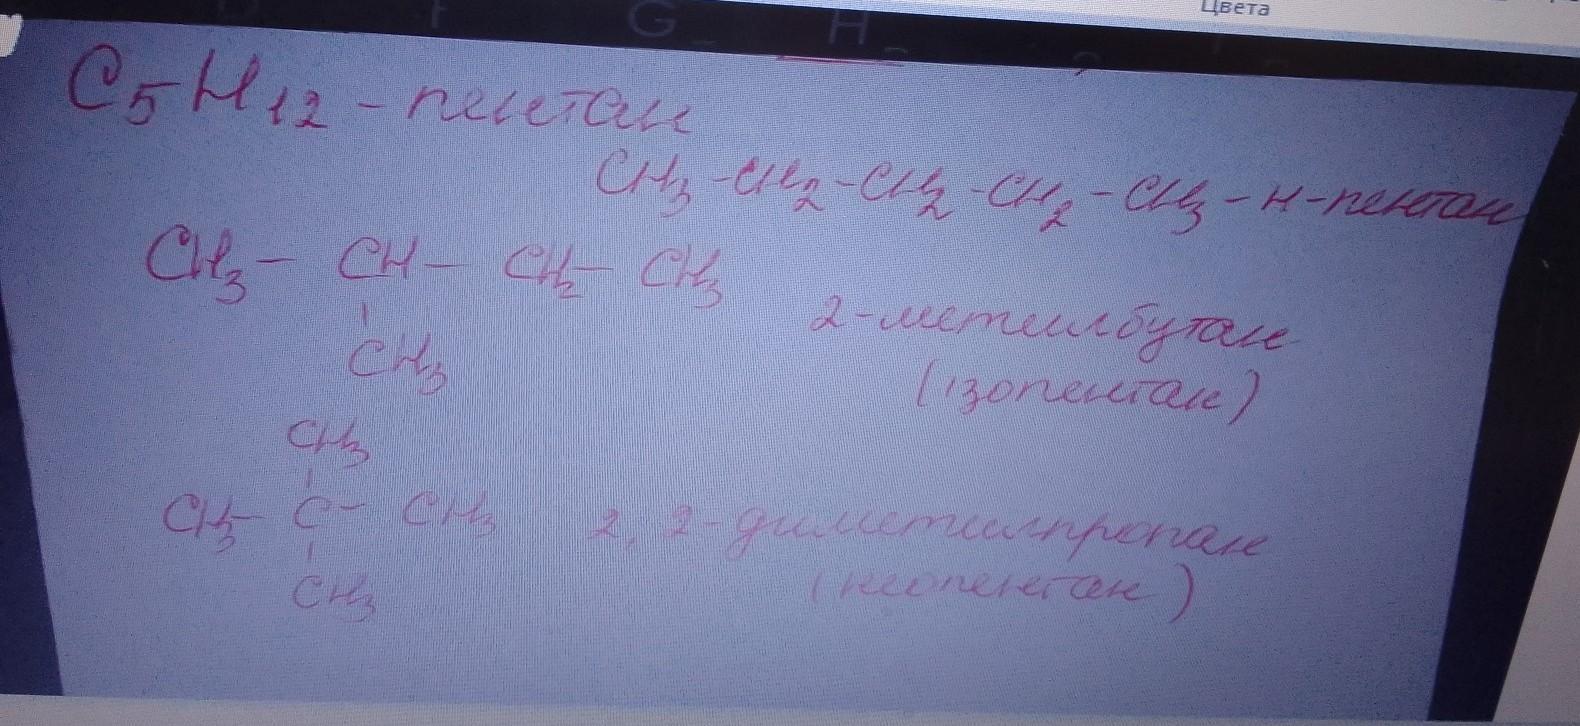 Цвета
G H
C₅H₁₂ - пентан
CH₃ - CH₂ - CH₂ - CH₂ - CH₃ - н-пентан
CH₃ - CH - CH₂ - CH₃
CH₃
2-метилбутан
(ізопентан)
CH₃
CH₃ - C - CH₃
2, 2-диметилпропан
CH₃
(неопентан)